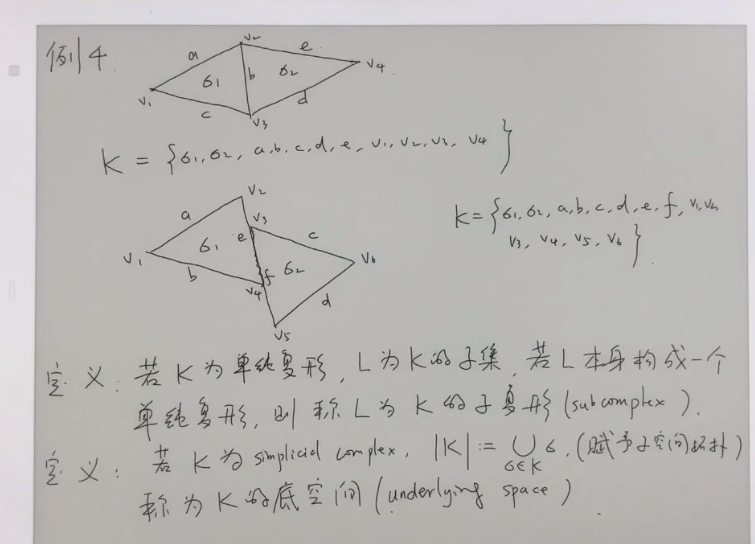 例4
v₂
a
e
v₁
σ₁
b
σ₂
v₄
c
v₃
d
K = {σ₁, σ₂, a, b, c, d, e, v₁, v₂, v₃, v₄}
v₂
a
v₃
e
c
v₁
σ₁
b
f
σ₂
v₆
v₄
d
v₅
K = {σ₁, σ₂, a, b, c, d, e, f, v₁, v₂,
v₃, v₄, v₅, v₆}
定义: 若K为单纯复形, L为K的子集, 若L本身构成一个
单纯复形, 则称L为K的子复形 (subcomplex).
定义: 若K为simplicial complex, |K| := ⋃_{σ∈K} σ, (赋予子空间拓扑)
称为K的底空间 (underlying space).